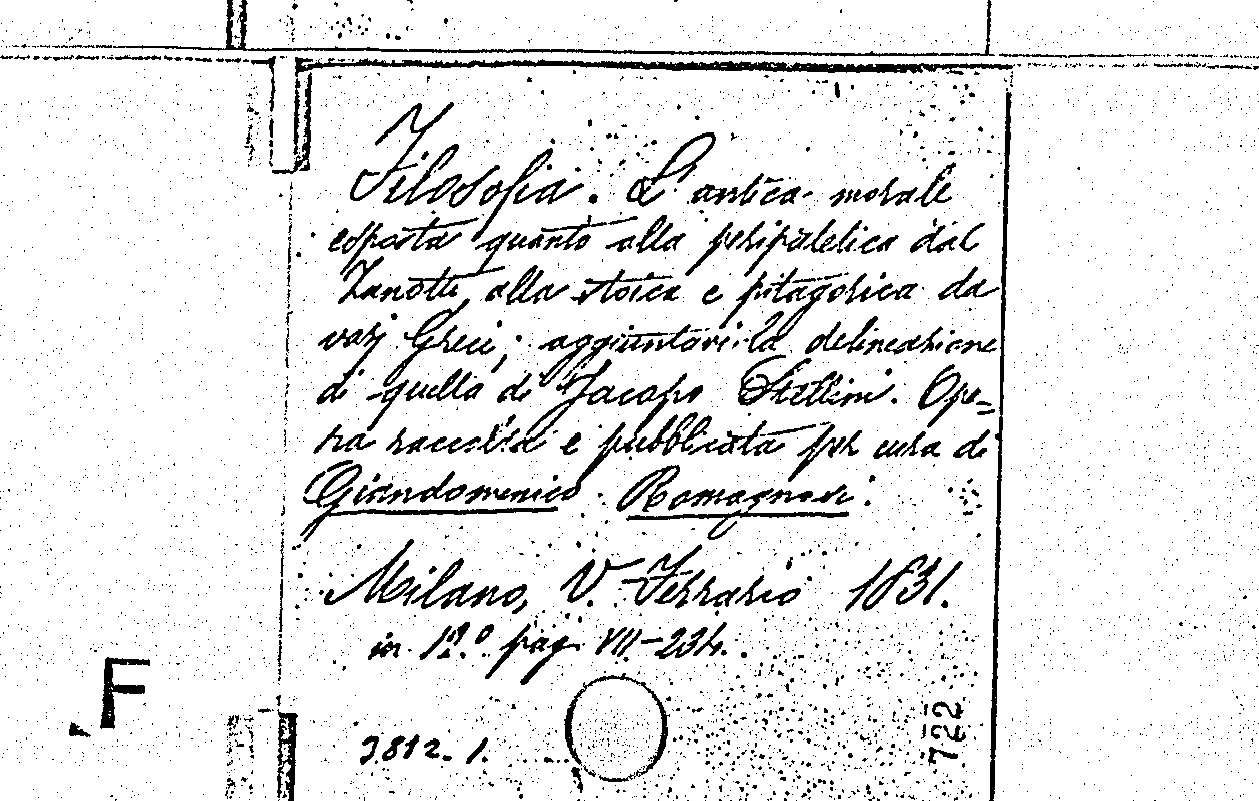 Filosofia. L'antica morale
esposta quanto alla peripatetica dal
Zanotti, alla stoica e pitagorica da
varj Greci; aggiuntavi la delineazione
di quella di Jacopo Stellini. Ope=
ra raccolta e pubblicata per cura di
Giandomenico Romagnosi.
Milano, V. Ferrario 1831.
in 12.º pag. VII-234.
F
9812. 1.
722